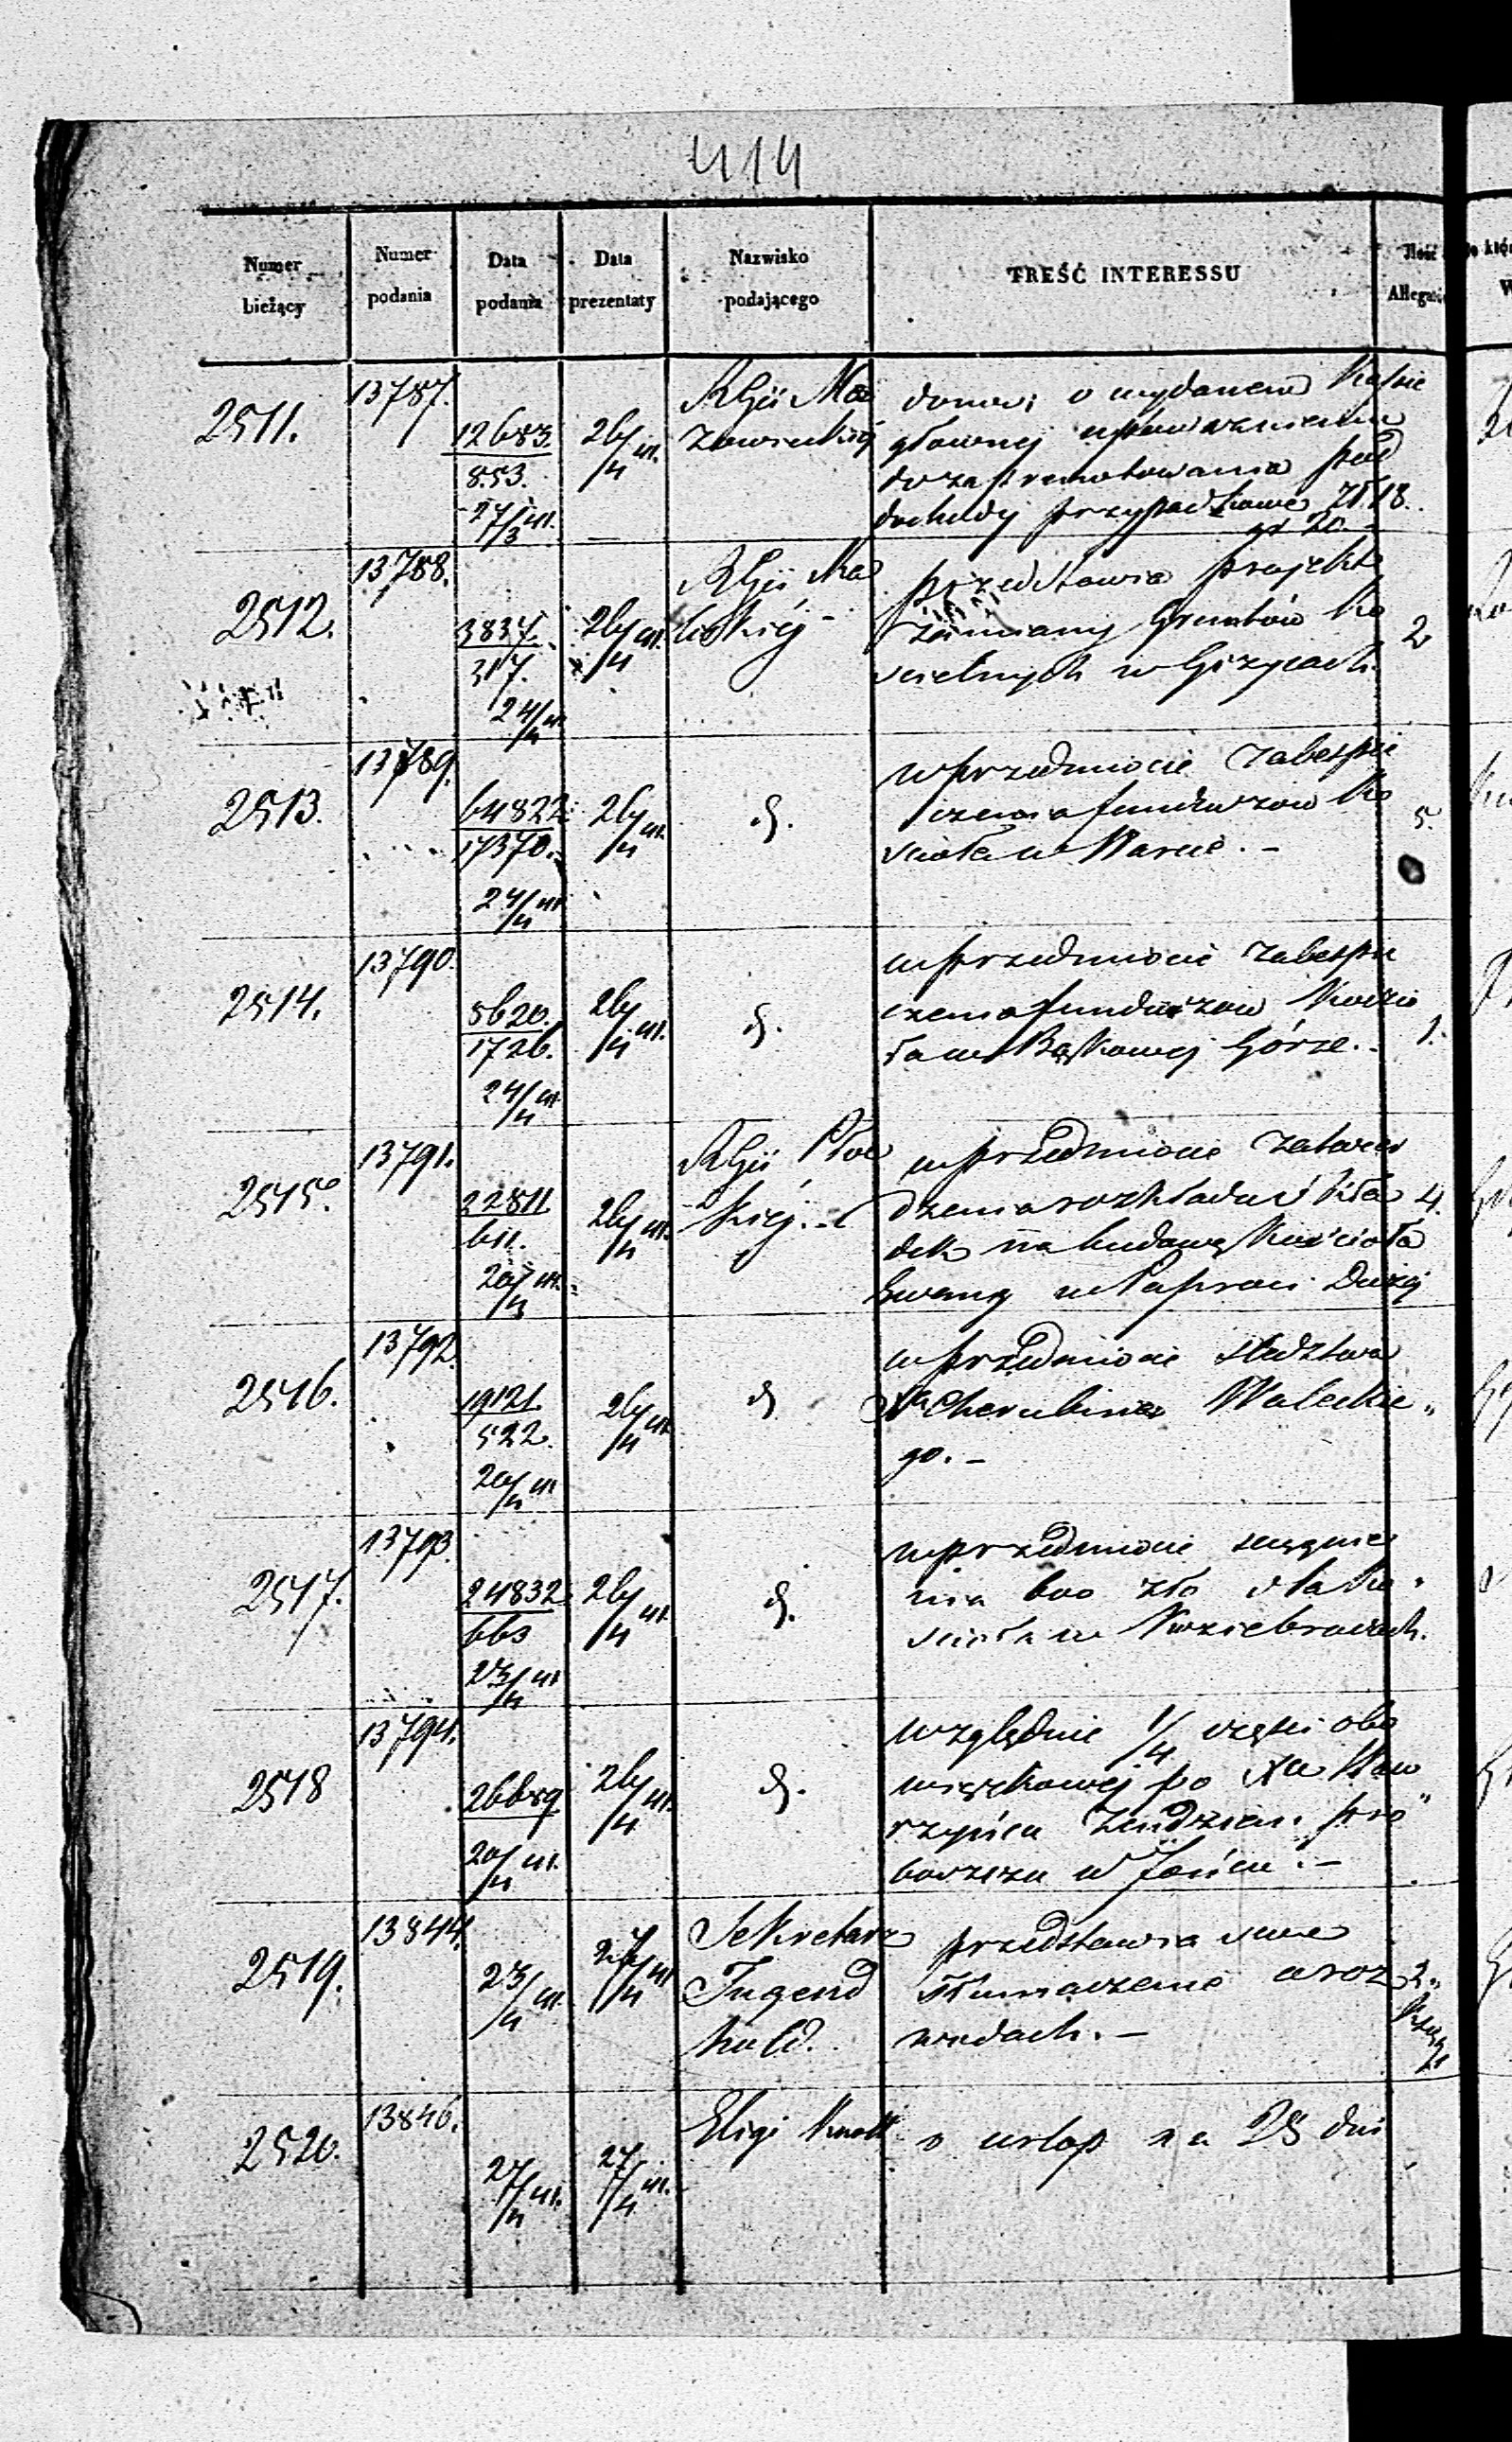 414
Numer bieżący | Numer podania | Data podania | Data prezentaty | Nazwisko podającego | TREŚĆ INTERESSU | Ilość Allegat
2511. | 13787. | 12683. 853. 27/3 m. | 26/4 m. | RGii Ma
zowieckiej
donosi o wydaniem Kasie
głównej upoważnienia
do zaprenotowania pod
dochody przypadkowe Zł 18.
gr 20.
2512. | 13788. | 3837. 317. 24/4 m. | 26/4 m. | RGii Ka
liskiej | 2
przedstawia projekt
zamiany Gruntów Ko
scielnych w Giżycach.
2513. | 13789. | 64822. 17370. 24/4 m. | 26/4 m. | d. | 5.
w przedmiocie zabespie
czenia funduszow Ko
scioła w Warcie. –
2514. | 13790. | 5620. 1726. 24/4 m. | 26/4 m. | d. | 1.
w przedmiocie zabespie
czenia funduszow Koscio
ła w Bąkowej Górze. –
2515. | 13791. | 22811. 611. 20/3 m. | 26/4 m. | RGii Płoc
kiej. – | 4.
w przedmiocie zatwier
dzenia rozkładu skła
dek na budowę Kościoła
Ewang w Paproci Dużej
2516. | 13792. | 19121. 522. 20/4 m. | 26/4 m. | d | "
w przedmiocie sledztwa
Xa Cherubina Waleckie
go. –
2517. | 13793. | 24832. 663 23/4 m | 26/4 m. | d.
w przedmiocie
nia 600 zło dla Ko
scioła w Koziebrodach.
2518 | 13794. | 26689 20/4 m. | 26/4 m. | d. | "
względnie 1/4 części obo
wiązkowej po Xu Waw
rzyńcu pro
boszczu w Jońcu. –
2519. | 13844. | 23/4 m. | 27/4 m | Sekretarz
Jugend
hold. | 2
przedstawia swe
tłumaczenie o roz
wodach. –
2520. | 13846. | 27/4 m. | 27/4 m. | Eligi
o urlop na 28 dni